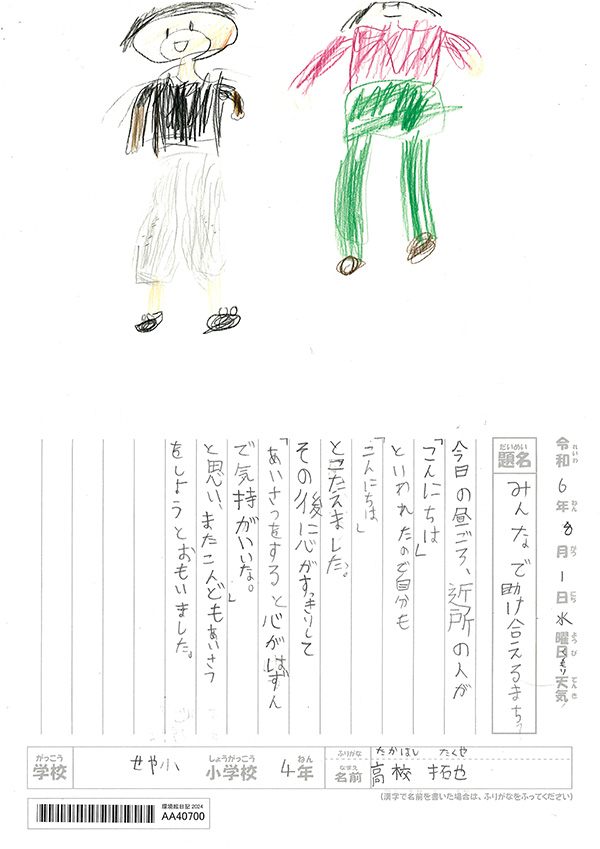 令和6年8月1日水曜日くもり天気
れいわ ねん がつ にち ようび てんき
だいめい
題名 みんなで助け合えるまち
今日の昼ごろ、近所の人が
「こんにちは」
といわれたので自分も
「こんにちは」
とこたえました。
その後に心がすっきりして
「あいさつをすると心がはずん
で気持がいいな。」
と思い、またこんどもあいさつ
をしようとおもいました。
がっこう しょうがっこう ねん
学校 せや小 小学校 4年
ふりがな たかはし たくや
なまえ
名前 高校 拓也
(漢字で名前を書いた場合は、ふりがなをふってください)
環境絵日記 2024
AA40700